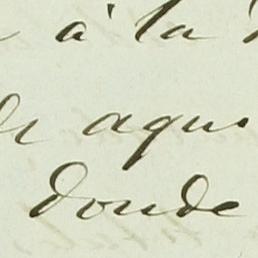 à la
aqui
donde